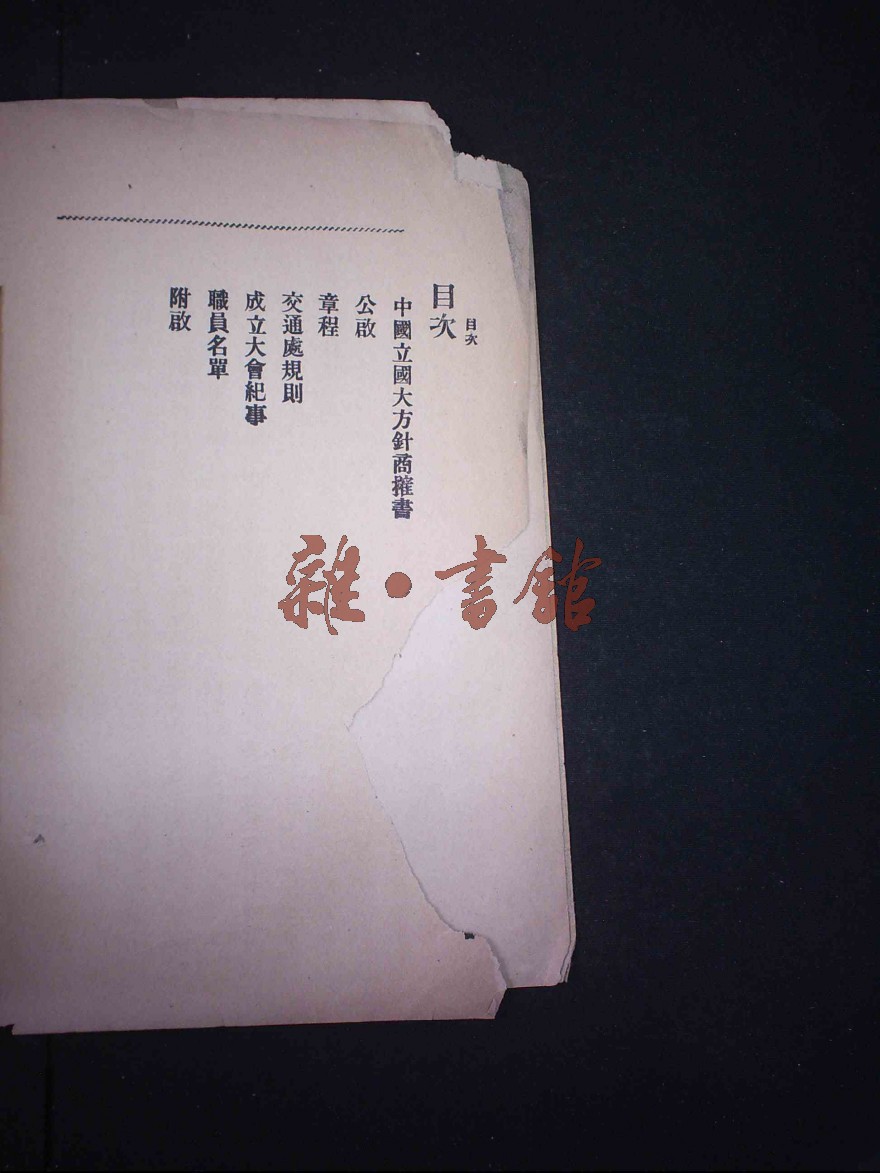 目次
目次
中國立國大方針商搉書
公啟
章程
交通處規則
成立大會紀事
職員名單
附啟
雜·書館